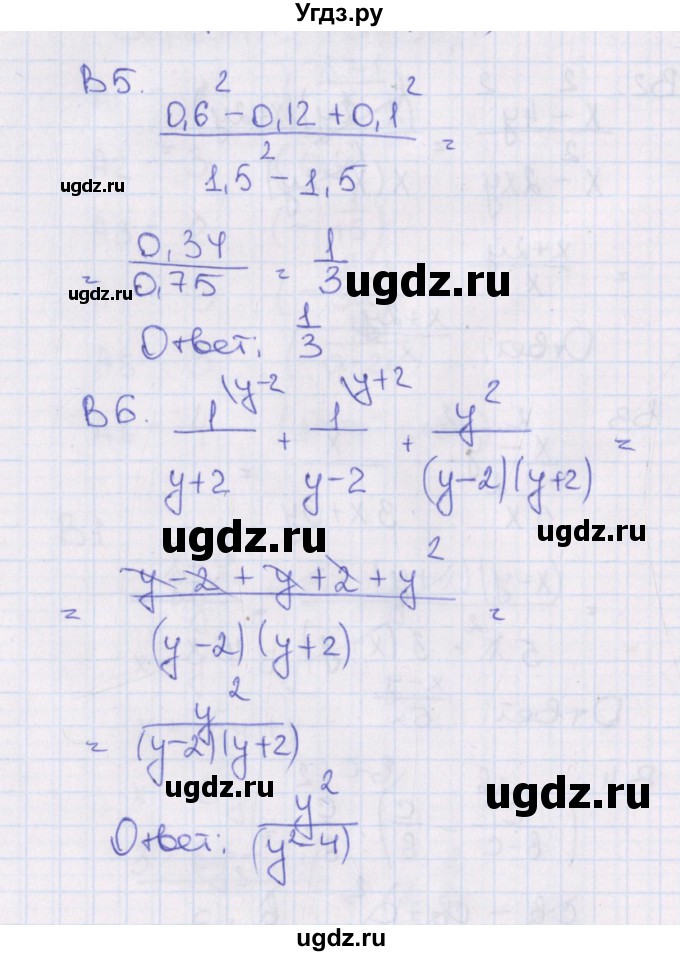 Угдз.ру
B5. (0,6² - 0,12 + 0,1²) / (1,5² - 1,5) =
ugdz.ru
= 0,34 / 0,75 = 1/3
ugdz.ru
ugdz.ru
Ответ: 1/3
B6. 1\y-2 / (y+2) + 1\y+2 / (y-2) + y² / ((y-2)(y+2)) =
ugdz.ru
ugdz.ru
= (y - 2 + y + 2 + y²) / ((y-2)(y+2)) =
= y² / ((y-2)(y+2))
ugdz.ru
ugdz.ru
Ответ: y² / (y²-4)
ugdz.ru